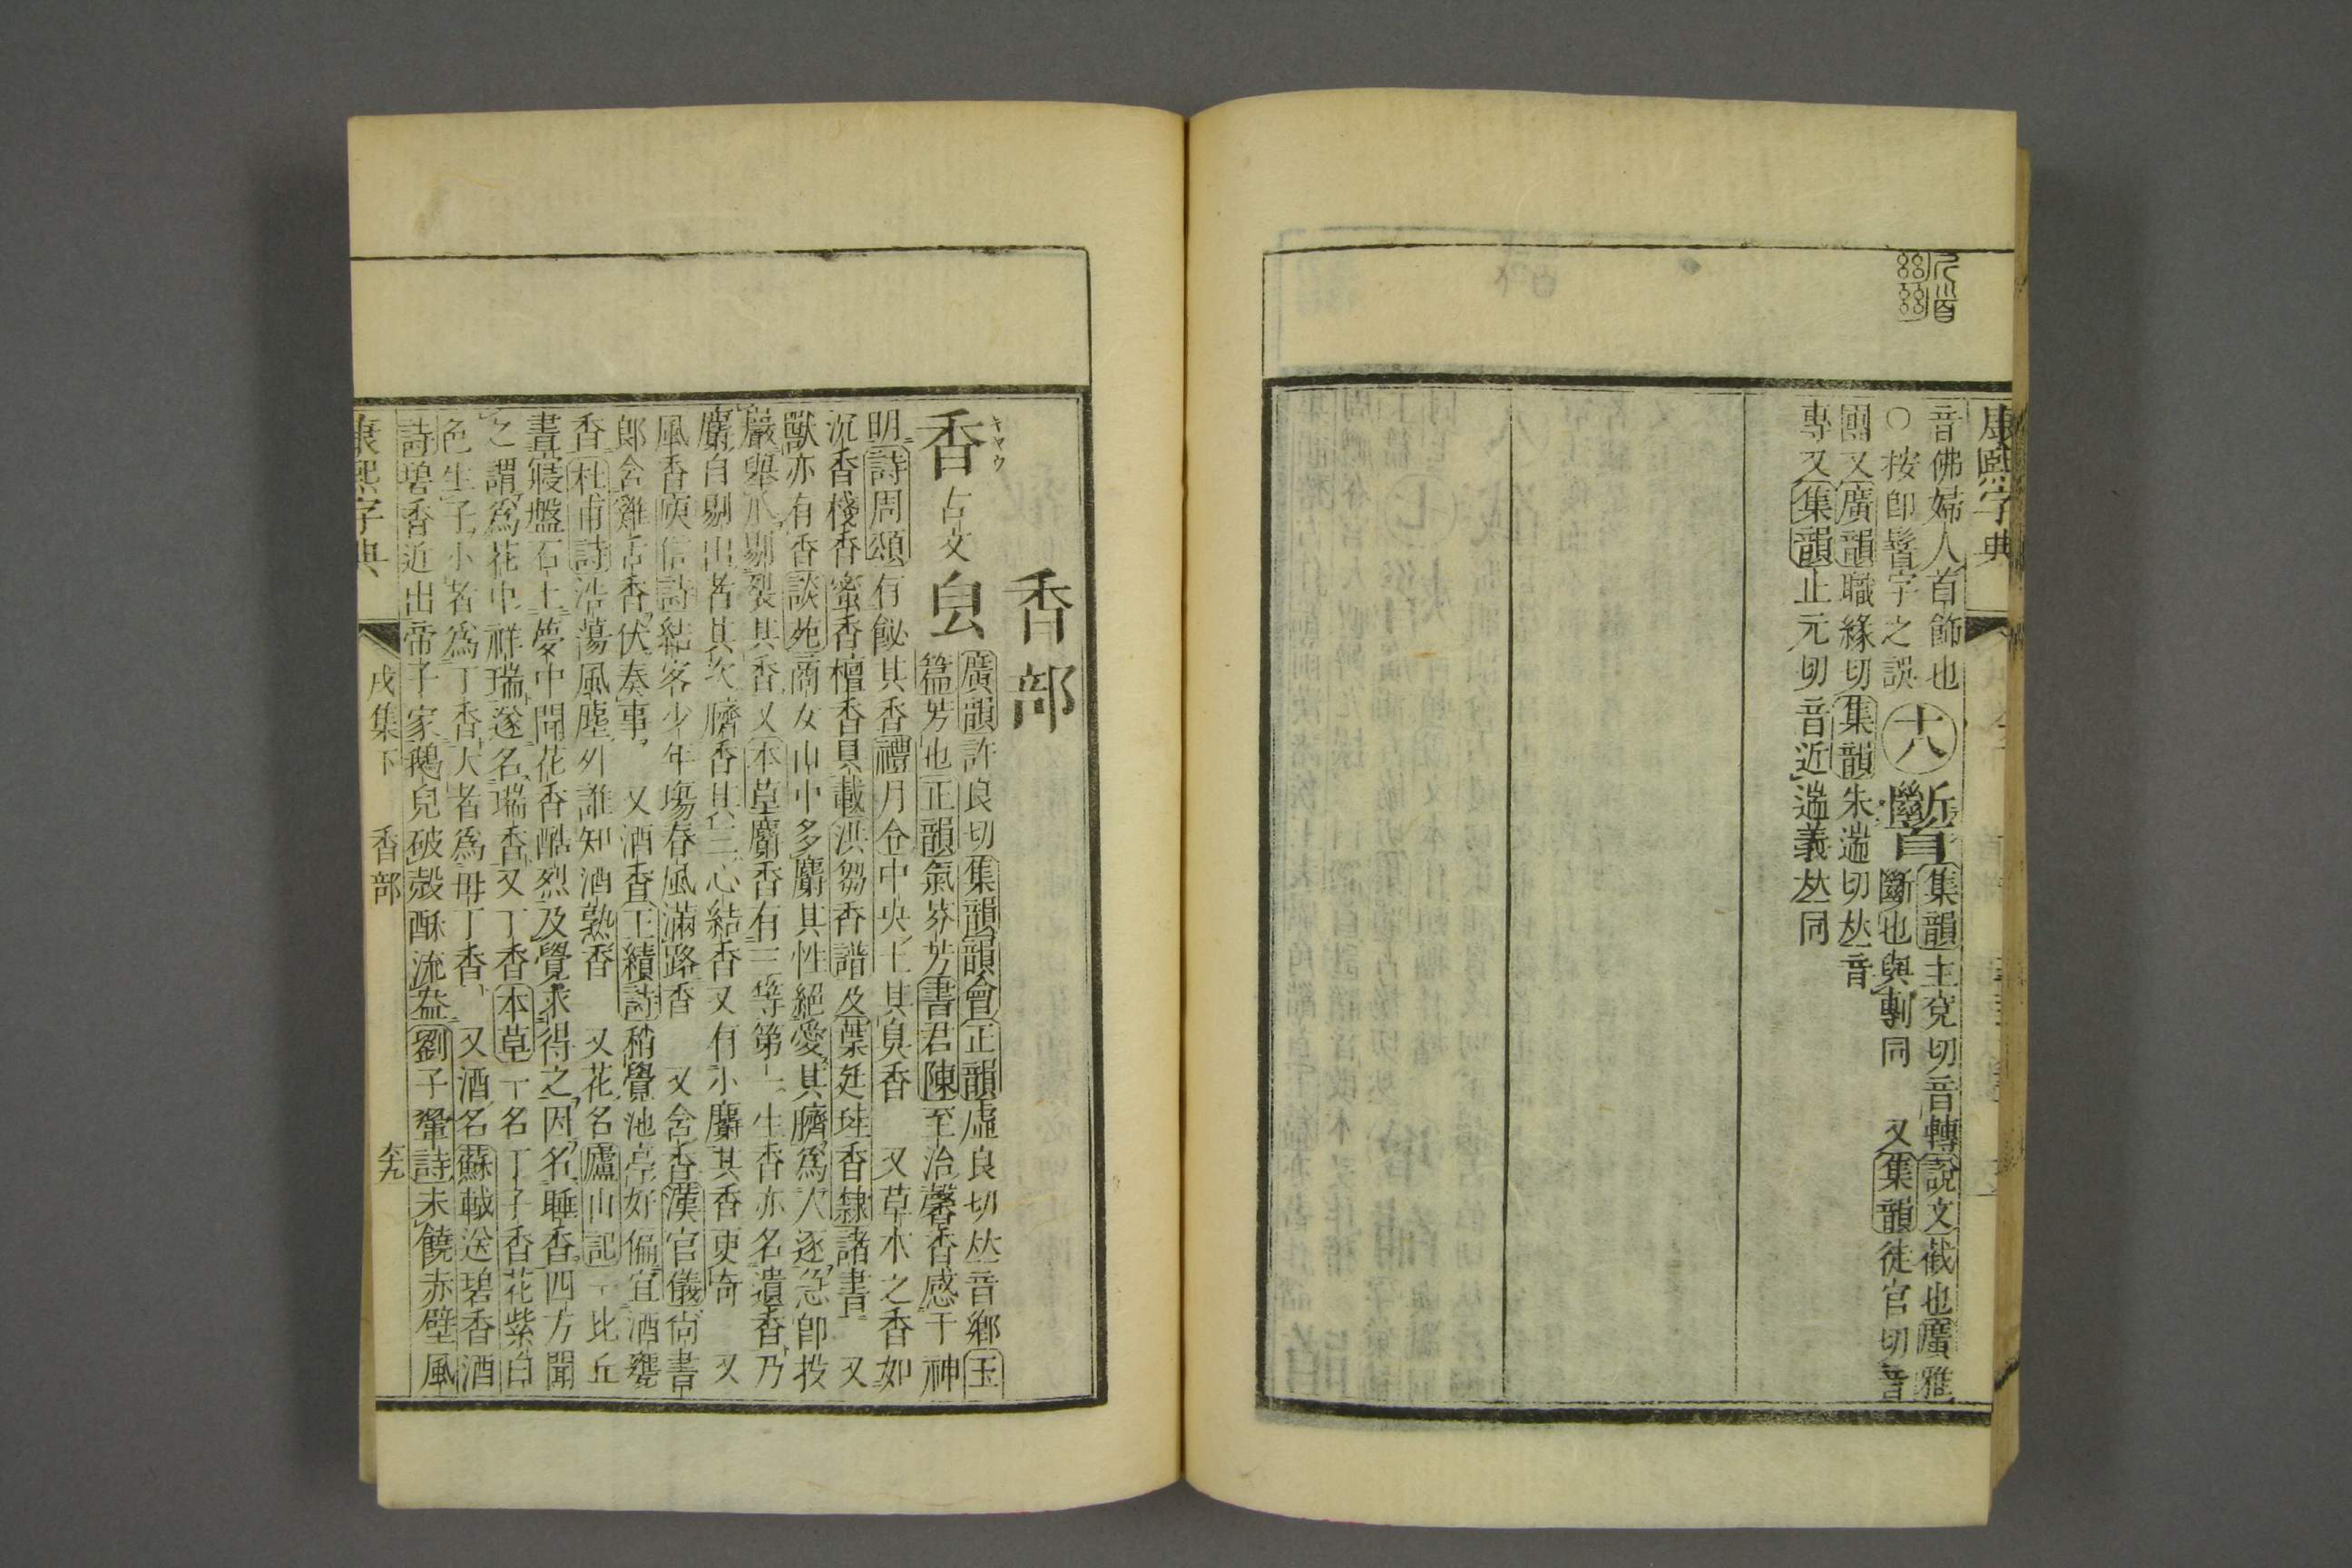 康熙字典
音佛婦人首飾也
○按卽髻字之誤 十八 𩠹 集韻主兗切音轉說文截也廣雅
斷也與剸同 又集韻徒官切音
團又廣韻職緣切集韻朱遄切𠀤音
專又集韻止元切音近遄義𠀤同
香部
香 古文 𤽄 廣韻許良切集韻韻會正韻虛良切𠀤音鄕玉
キヤウ
篇芳也正韻氣芬芳書君陳至治馨香感于神
明詩周頌有飶其香禮月令中央土其臭香 又草木之香如
沉香棧香蜜香檀香具載洪芻香譜及葉廷珪香隸諸書 又
獸亦有香談苑商女山中多麝其性絕愛其臍爲人逐急卽投
巖舉爪剔裂其香又本草麝香有三等第一生香亦名遺香乃
麝自剔出者其次臍香其三心結香又有小麝其香更奇 又
風香庾信詩結客少年塲春風滿路香 又含香漢官儀尙書
郎含雞舌香伏奏事 又酒香王績詩稍覺池亭好偏宜酒甕
香杜甫詩浩蕩風塵外誰知酒熟香 又花名廬山記一比丘
晝寢盤石上夢中聞花香酷烈及覺求得之因名睡香四方聞
之謂爲花中祥瑞遂名瑞香又丁香本草一名丁子香花紫白
色生子小者爲丁香大者爲母丁香 又酒名蘇軾送碧香酒
詩碧香近出帝子家鵝兒破殼酥流盎劉子翬詩未饒赤壁風
康熙字典 戌集下 香部 卆九